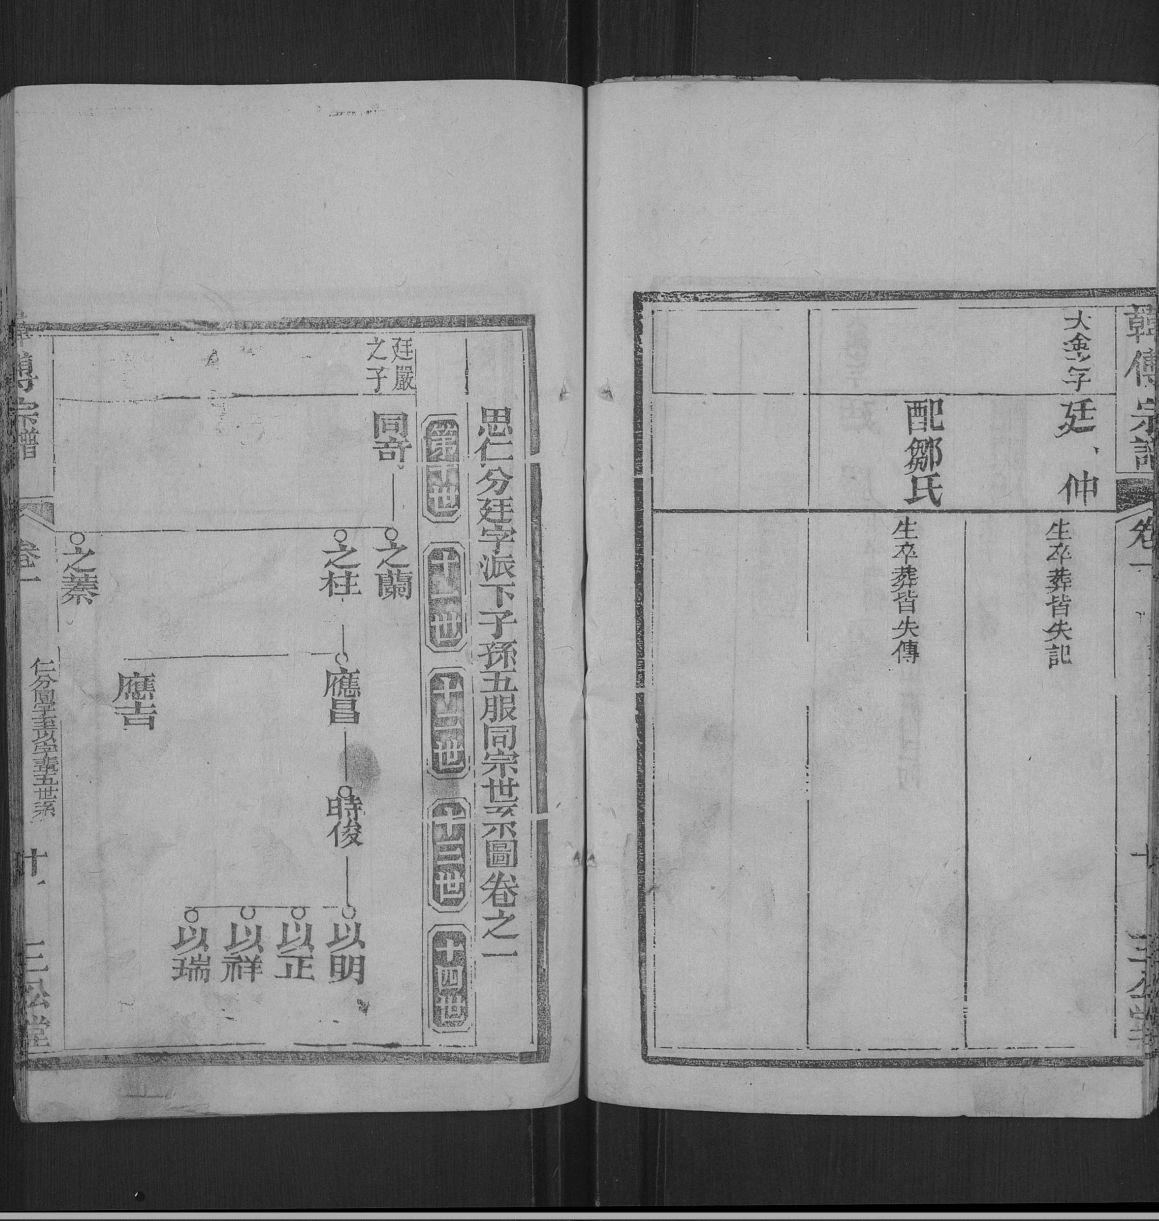 韓傅宗譜
卷一
三公堂
大金之子
廷仲
生卒葬皆失記
配鄒氏
生卒葬皆失傳
思仁分廷字派下子孫五服同宗世系圖卷之一
第十世
十一世
十二世
十三世
十四世
廷嚴
之子
同奇
之蘭
之桂
之蓁
應昌
應吉
時俊
以明
以正
以祥
以瑞
傅宗譜
卷一
三公堂